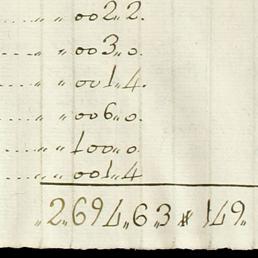 „ „ 002„2.
„ „ 003„0.
„ „ 001„4.
„ „ 006„0.
„ „ 100„0
„ „ 001„4
„2„694„6„3 # 149„